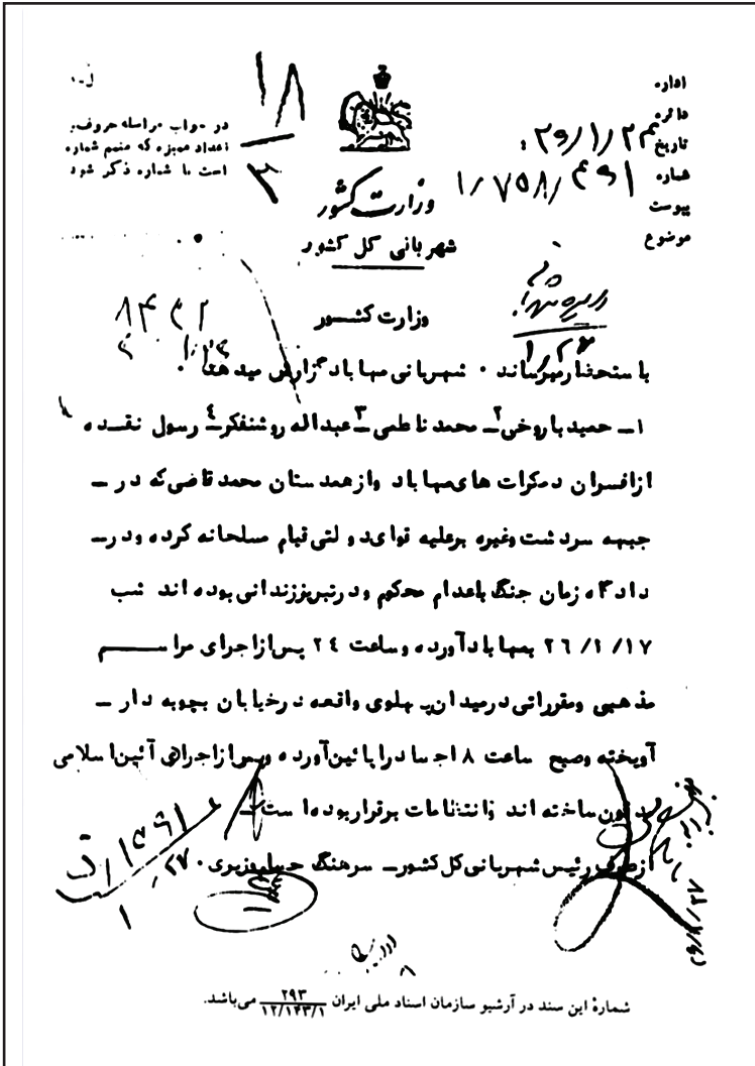 اداره
دائره
تاریخ ۲۶/۱/۲۳
شماره
پیوست
موضوع
ل-۰
۱۸
۳
در جواب مراسله حروف و
اعداد ممیزه که منضم شماره
است با شماره ذکر شود
وزارت کشور
شهربانی کل کشور
وزارت کشــور
باستحضار میرساند ۰ شهربانی مهاباد گزارش میدهد
۱ــ حمید باروخی ۲ــ محمد ناظمی ۳ــ عبداله روشنفکر ٤ــ رسول نقــده
ازافسران دمکرات های مهاباد وازهمدستان محمد قاضی که در ــ
جبهه سردشت وغیره برعلیه قوای دولتی قیام مسلحانه کرده ودرــ
دادگاه زمان جنگ باعدام محکوم ودرتبریززندانی بوده اند شب
۲٦/۱/۱۷ بمهابادآورده وساعت ۲٤ پس‌ازاجرای مراســــم
مذهبی ومقرراتی درمیدان پهلوی واقعه درخیابان بچوبه دار ــ
آویخته وصبح ساعت ۸ اجساد را پائین‌آورده وپس‌ازاجرای آئین‌اسلامی
مدفون‌ساخته اند وانتظامات برقراربوده است ــ
ازطرف رئیس شهربانی‌کل‌کشورــ سرهنگ
شمارهٔ این سند در آرشیو سازمان اسناد ملی ایران ۲۹۳ ۱۲/۱۴۳/۱ می‌باشد.